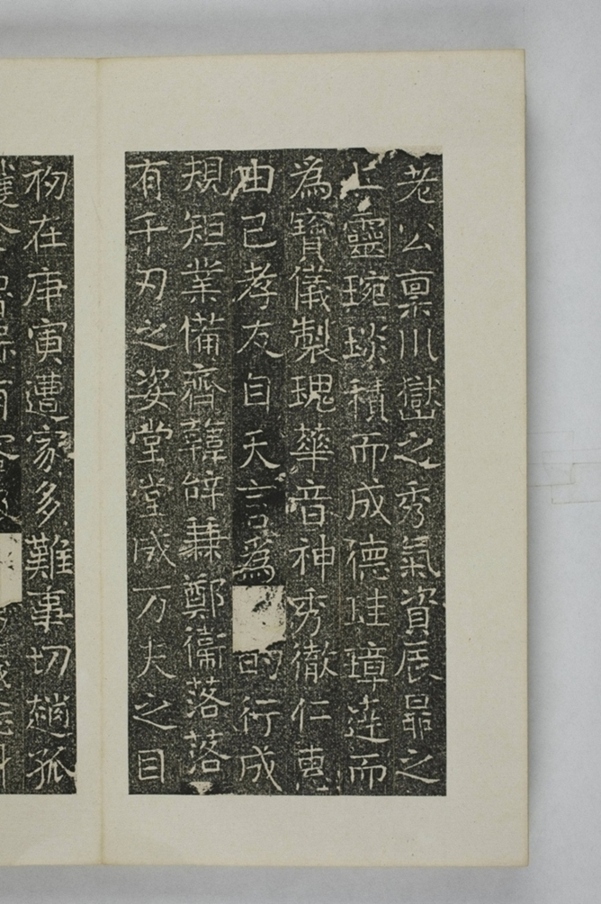 老公稟川嶽之秀氣資辰昴之
上靈琬琰積而成德珪璋達而
為寶儀製瑰華音神秀徹仁惠
由己孝友自天言為的行成
規矩業備齊韓辝兼鄭衛落落
有千刃之姿堂堂成万夫之目
初在庚寅遭家多難事切趙孤